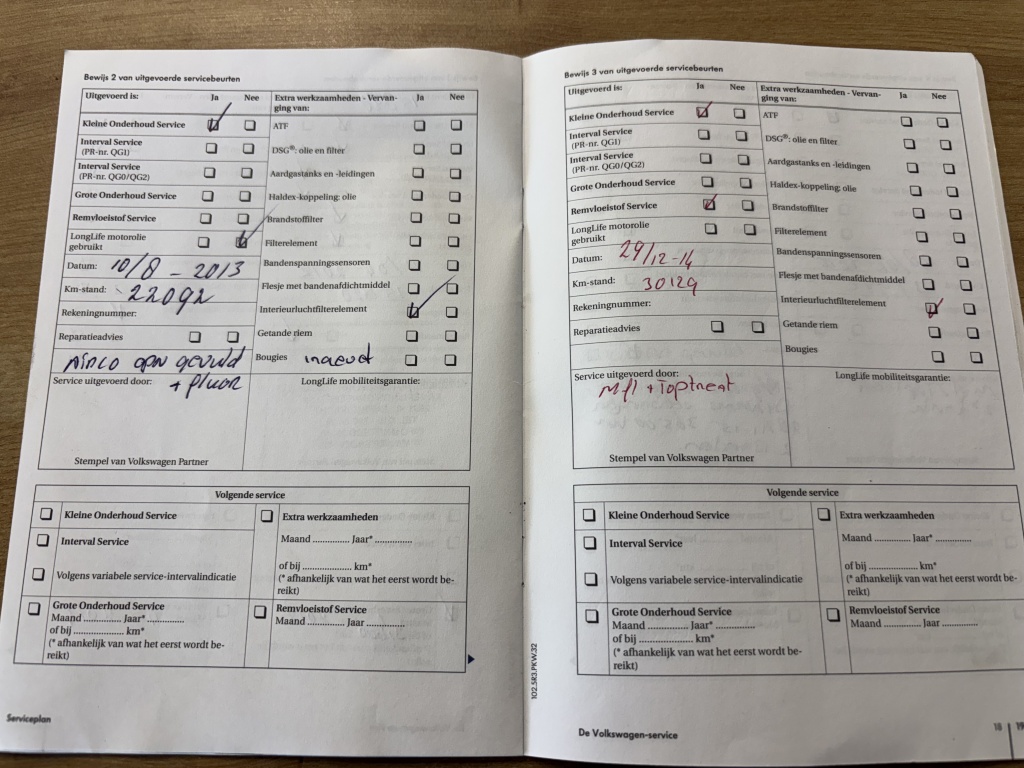 Bewijs 2 van uitgevoerde servicebeurten
Uitgevoerd is: Ja Nee
Extra werkzaamheden - Vervan-
ging van: Ja Nee
Kleine Onderhoud Service
ATF
Interval Service
(PR-nr. QG1)
DSG®: olie en filter
Interval Service
(PR-nr. QG0/QG2)
Aardgastanks en -leidingen
Grote Onderhoud Service
Haldex-koppeling: olie
Remvloeistof Service
Brandstoffilter
LongLife motorolie
gebruikt
Filterelement
Datum: 10/8 - 2013
Bandenspanningssensoren
Km-stand: 22092
Flesje met bandenafdichtmiddel
Rekeningnummer:
Interieurluchtfilterelement
Reparatieadvies
Getande riem
Airco opn gevuld
Bougies
Service uitgevoerd door:
LongLife mobiliteitsgarantie:
Stempel van Volkswagen Partner
Volgende service
Kleine Onderhoud Service
Extra werkzaamheden
Interval Service
Maand .............. Jaar* ..............
Volgens variabele service-intervalindicatie
of bij ................... km*
(* afhankelijk van wat het eerst wordt be-
reikt)
Grote Onderhoud Service
Maand .............. Jaar* ..............
of bij ................... km*
(* afhankelijk van wat het eerst wordt be-
reikt)
Remvloeistof Service
Maand .............. Jaar ..............
Serviceplan
102.5R3.PKW.32
Bewijs 3 van uitgevoerde servicebeurten
Uitgevoerd is: Ja Nee
Extra werkzaamheden - Vervan-
ging van: Ja Nee
Kleine Onderhoud Service
ATF
Interval Service
(PR-nr. QG1)
DSG®: olie en filter
Interval Service
(PR-nr. QG0/QG2)
Aardgastanks en -leidingen
Grote Onderhoud Service
Haldex-koppeling: olie
Remvloeistof Service
Brandstoffilter
LongLife motorolie
gebruikt
Filterelement
Datum: 29/12-14
Bandenspanningssensoren
Km-stand: 30129
Flesje met bandenafdichtmiddel
Rekeningnummer:
Interieurluchtfilterelement
Reparatieadvies
Getande riem
Bougies
Service uitgevoerd door:
+ Toptreat
LongLife mobiliteitsgarantie:
Stempel van Volkswagen Partner
Volgende service
Kleine Onderhoud Service
Extra werkzaamheden
Interval Service
Maand .............. Jaar* ..............
Volgens variabele service-intervalindicatie
of bij ................... km*
(* afhankelijk van wat het eerst wordt be-
reikt)
Grote Onderhoud Service
Maand .............. Jaar* ..............
of bij ................... km*
(* afhankelijk van wat het eerst wordt be-
reikt)
Remvloeistof Service
Maand .............. Jaar ..............
De Volkswagen-service
18 19